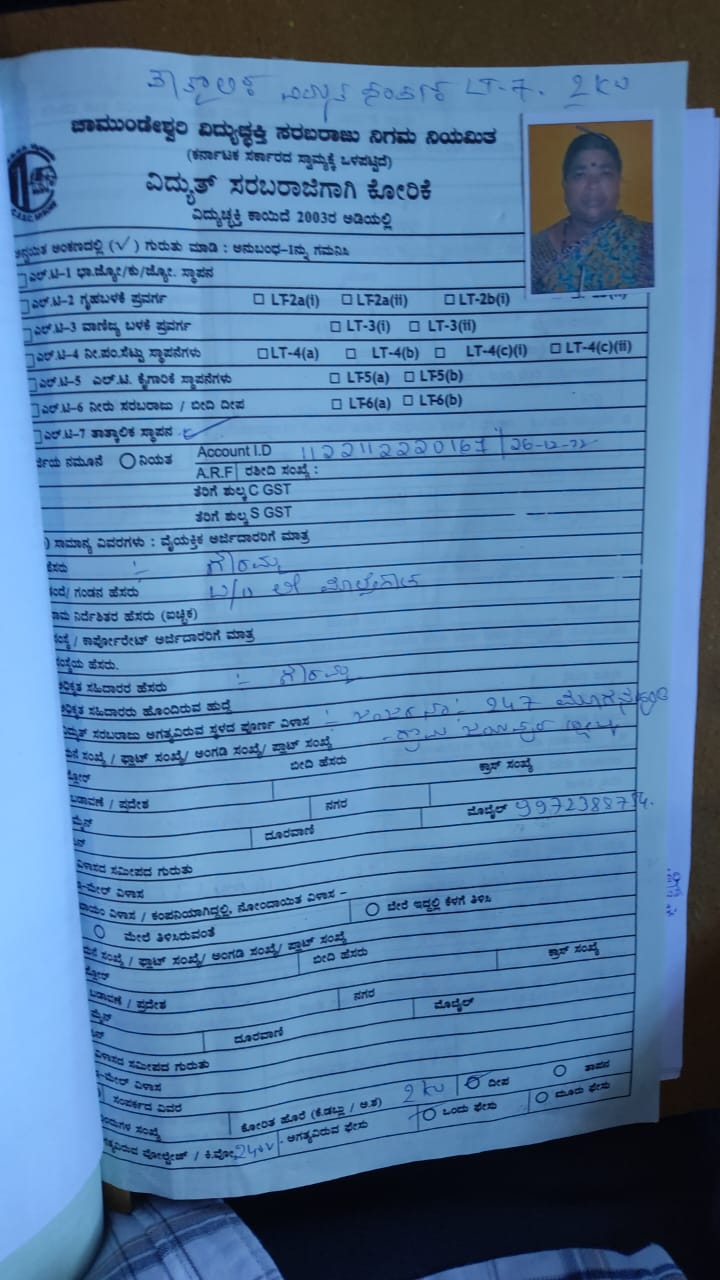 ತಾತ್ಕಾಲಿಕ ವಿದ್ಯುತ್ LT-7. 2KW
ಚಾಮುಂಡೇಶ್ವರಿ ವಿದ್ಯುಚ್ಛಕ್ತಿ ಸರಬರಾಜು ನಿಗಮ ನಿಯಮಿತ
(ಕರ್ನಾಟಕ ಸರ್ಕಾರದ ಸ್ವಾಮ್ಯಕ್ಕೆ ಒಳಪಟ್ಟಿದೆ)
ವಿದ್ಯುತ್ ಸರಬರಾಜಿಗಾಗಿ ಕೋರಿಕೆ
ವಿದ್ಯುಚ್ಛಕ್ತಿ ಕಾಯಿದೆ 2003ರ ಅಡಿಯಲ್ಲಿ
ಅಂಕಣದಲ್ಲಿ (√) ಗುರುತು ಮಾಡಿ : ಅನುಬಂಧ-1ನ್ನು ಗಮನಿಸಿ
ಎಲ್.ಟಿ-1 ಭಾ.ಜ್ಯೋ/ಕು/ಜ್ಯೋ. ಸ್ಥಾಪನ
ಎಲ್.ಟಿ-2 ಗೃಹಬಳಕೆ ಪ್ರವರ್ಗ □ LT-2a(i) □ LT-2a(ii) □ LT-2b(i)
ಎಲ್.ಟಿ-3 ವಾಣಿಜ್ಯ ಬಳಕೆ ಪ್ರವರ್ಗ □ LT-3(i) □ LT-3(ii)
ಎಲ್.ಟಿ-4 ನೀ.ಪಂ.ಸೆಟ್ಟು ಸ್ಥಾಪನೆಗಳು □ LT-4(a) □ LT-4(b) □ LT-4(c)(i) □ LT-4(c)(ii)
ಎಲ್.ಟಿ-5 ಎಲ್.ಟಿ. ಕೈಗಾರಿಕೆ ಸ್ಥಾಪನೆಗಳು □ LT-5(a) □ LT-5(b)
ಎಲ್.ಟಿ-6 ನೀರು ಸರಬರಾಜು / ಬೀದಿ ದೀಪ □ LT-6(a) □ LT-6(b)
ಎಲ್.ಟಿ-7 ತಾತ್ಕಾಲಿಕ ಸ್ಥಾಪನ ✓
ನಮೂನೆ ○ ನಿಯತ Account I.D 1122112220167 | 26-12-22
A.R.F ರಶೀದಿ ಸಂಖ್ಯೆ :
ತೆರಿಗೆ ಶುಲ್ಕ C GST
ತೆರಿಗೆ ಶುಲ್ಕ S GST
) ಸಾಮಾನ್ಯ ವಿವರಗಳು : ವೈಯಕ್ತಿಕ ಅರ್ಜಿದಾರರಿಗೆ ಮಾತ್ರ
ಹೆಸರು :- ಗೌರಮ್ಮ
ಗಂಡನ ಹೆಸರು W/O
ನಿರ್ದೇಶಿತರ ಹೆಸರು (ಐಚ್ಛಿಕ)
/ ಕಾರ್ಪೋರೇಟ್ ಅರ್ಜಿದಾರರಿಗೆ ಮಾತ್ರ
ಸಂಸ್ಥೆಯ ಹೆಸರು.
ಅಧಿಕೃತ ಸಹಿದಾರರ ಹೆಸರು :- ಗೌರಮ್ಮ
ಅಧಿಕೃತ ಸಹಿದಾರರು ಹೊಂದಿರುವ ಹುದ್ದೆ
ವಿದ್ಯುತ್ ಸರಬರಾಜು ಅಗತ್ಯವಿರುವ ಸ್ಥಳದ ಪೂರ್ಣ ವಿಳಾಸ :- 247
ಮನೆ ಸಂಖ್ಯೆ / ಫ್ಲಾಟ್ ಸಂಖ್ಯೆ/ ಅಂಗಡಿ ಸಂಖ್ಯೆ/ ಪ್ಲಾಟ್ ಸಂಖ್ಯೆ ಗ್ರಾಮ
ಬೀದಿ ಹೆಸರು ಕ್ರಾಸ್ ಸಂಖ್ಯೆ
ಬಡಾವಣೆ / ಪ್ರದೇಶ ನಗರ
ದೂರವಾಣಿ ಮೊಬೈಲ್ 9972388754.
ವಿಳಾಸದ ಸಮೀಪದ ಗುರುತು
ಇ-ಮೇಲ್ ವಿಳಾಸ
ವಿಳಾಸ / ಕಂಪನಿಯಾಗಿದ್ದಲ್ಲಿ, ನೋಂದಾಯಿತ ವಿಳಾಸ –
○ ಮೇಲೆ ತಿಳಿಸಿರುವಂತೆ ○ ಬೇರೆ ಇದ್ದಲ್ಲಿ ಕೆಳಗೆ ತಿಳಿಸಿ
ಮನೆ ಸಂಖ್ಯೆ / ಫ್ಲಾಟ್ ಸಂಖ್ಯೆ/ ಅಂಗಡಿ ಸಂಖ್ಯೆ/ ಪ್ಲಾಟ್ ಸಂಖ್ಯೆ
ಬೀದಿ ಹೆಸರು ಕ್ರಾಸ್ ಸಂಖ್ಯೆ
ಬಡಾವಣೆ / ಪ್ರದೇಶ ನಗರ
ದೂರವಾಣಿ ಮೊಬೈಲ್
ವಿಳಾಸದ ಸಮೀಪದ ಗುರುತು
ಇ-ಮೇಲ್ ವಿಳಾಸ
) ಸಂಪರ್ಕದ ವಿವರ
ಸಂಖ್ಯೆ ಕೋರಿತ ಹೊರೆ (ಕಿ.ಡಬ್ಲು / ಅ.ಶ) 2KW ○ ದೀಪ ○ ತಾಪನ
ಅಗತ್ಯವಿರುವ ವೋಲ್ಟೇಜ್ / ಕಿ.ವೋ. 240V ಅಗತ್ಯವಿರುವ ಫೇಸು ○ ಒಂದು ಫೇಸು ○ ಮೂರು ಫೇಸು